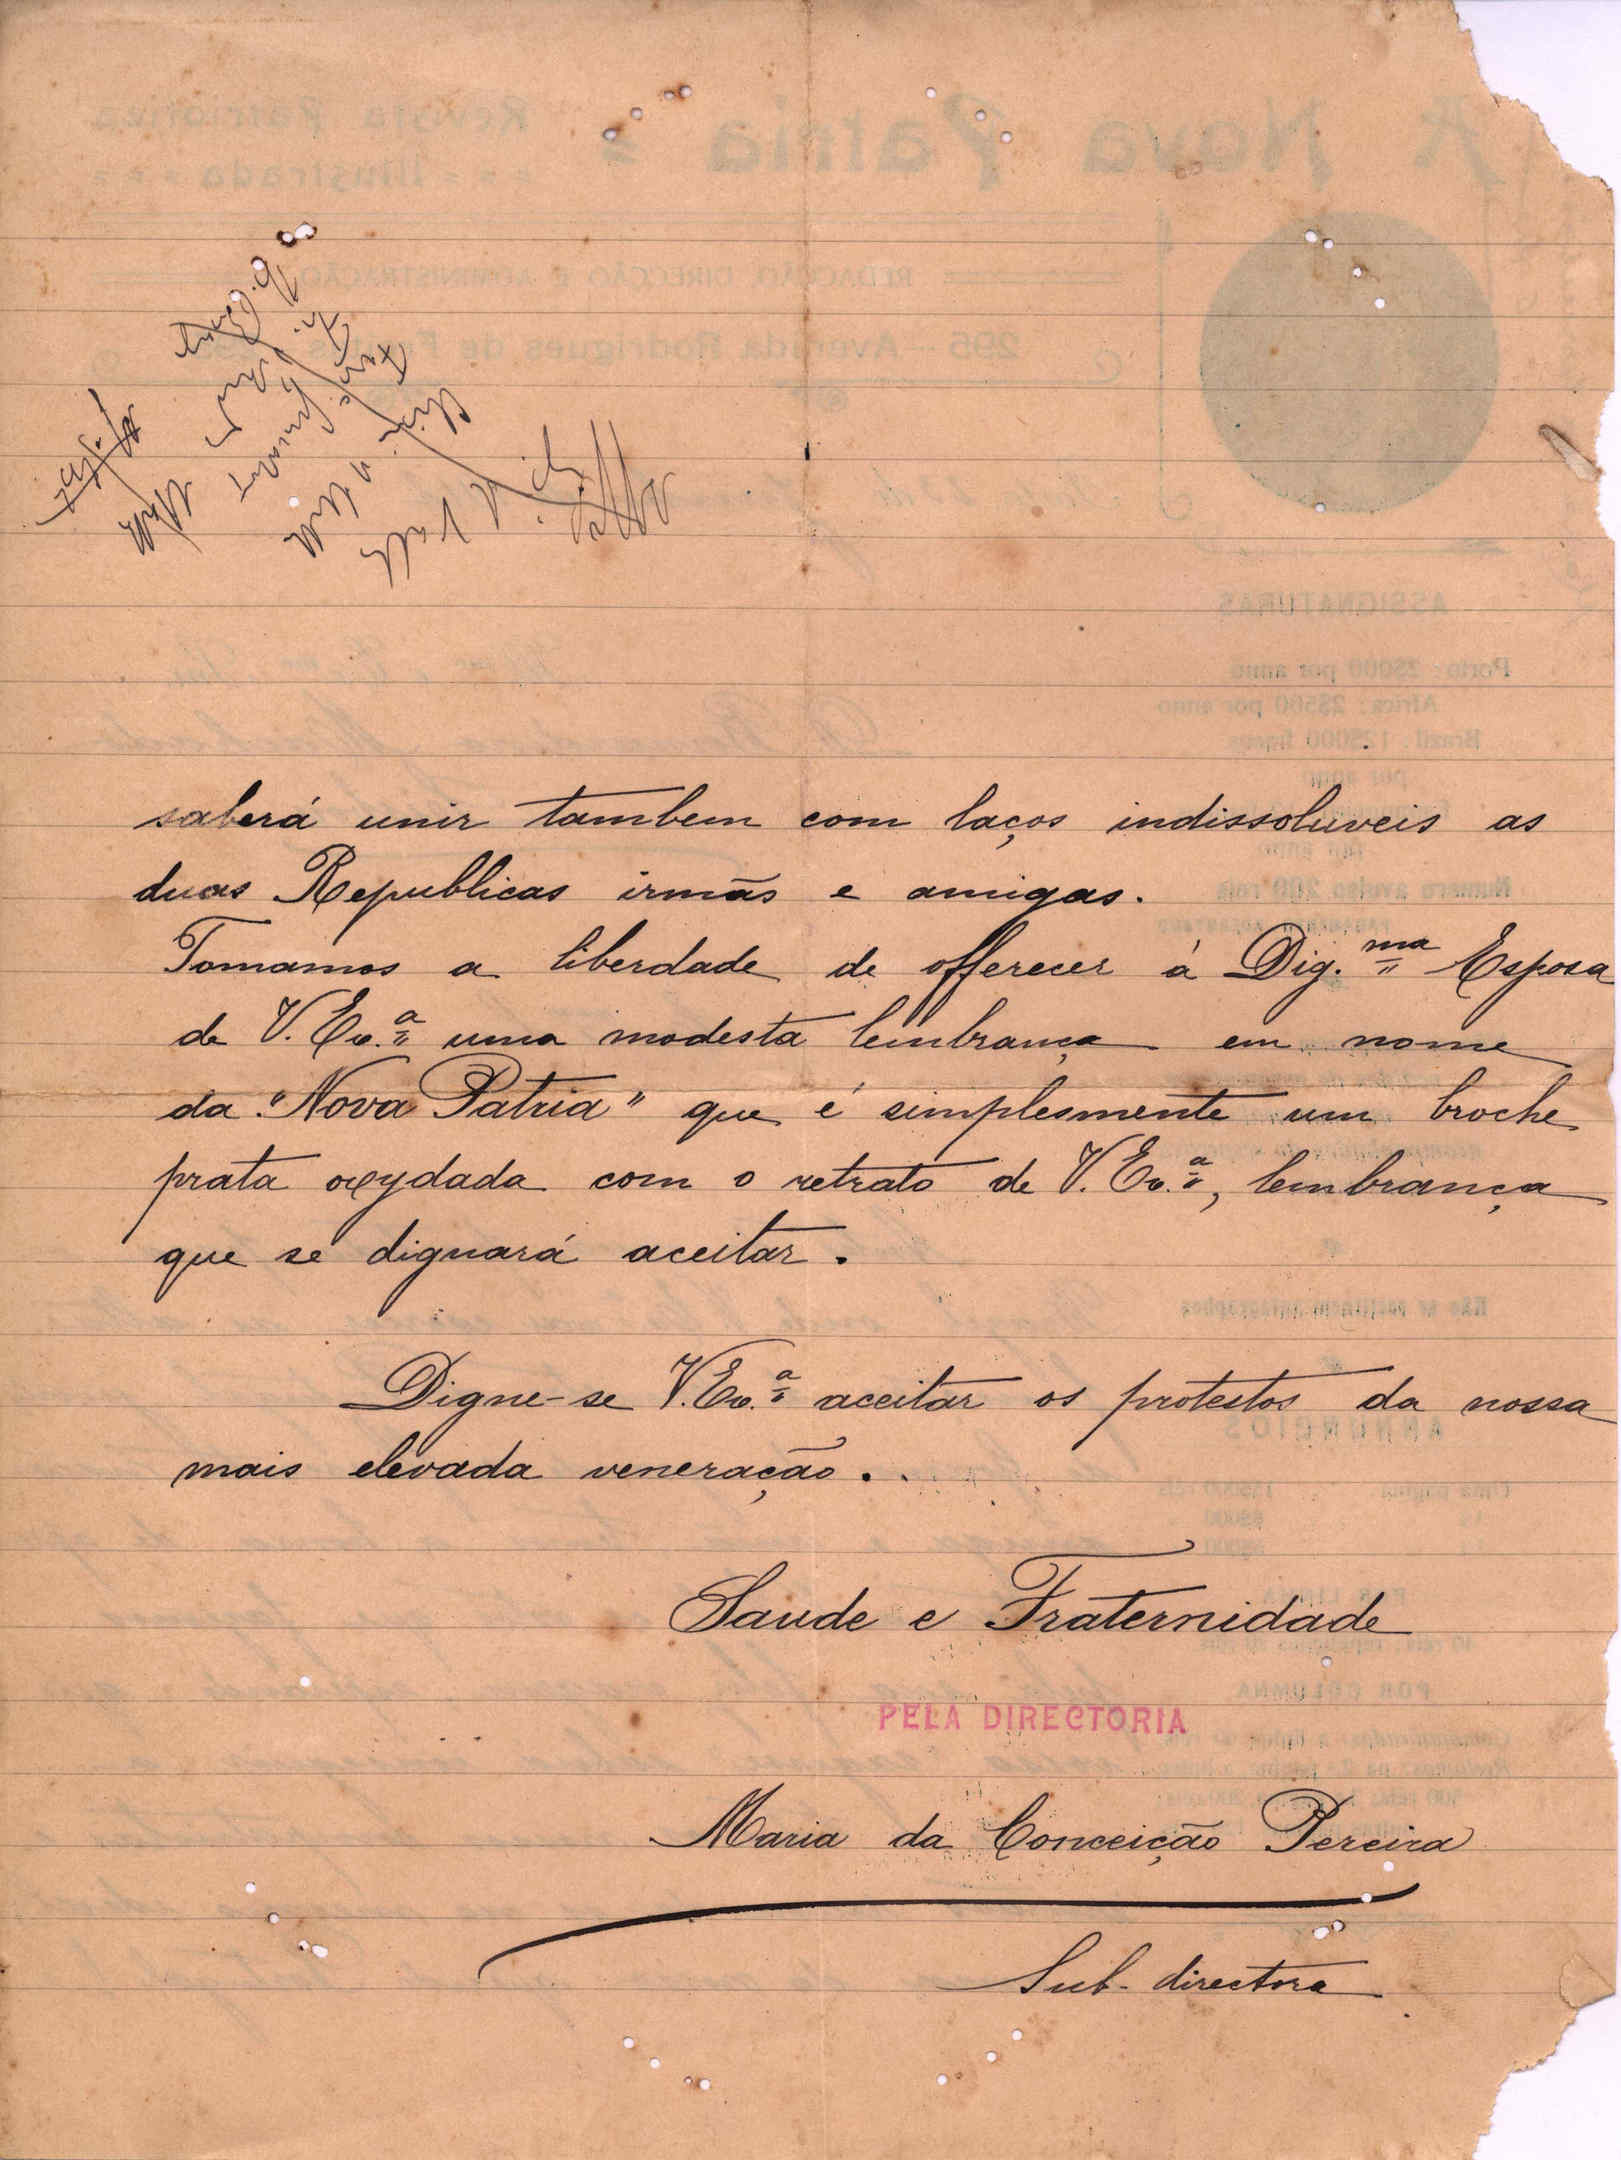 saberá unir tambem com laços indissoluveis as
duas Republicas irmãs e amigas.
Tomamos a liberdade de offerecer á Dig.ma Esposa
de V. Ex.a uma modesta lembrança em nome
da "Nova Patria" que é simplesmente um broche
prata oxydada com o retrato de V. Ex.a, lembrança
que se dignará aceitar.
Digne-se V. Ex.a aceitar os protestos da nossa
mais elevada veneração.
Saude e Fraternidade
PELA DIRECTORIA
Maria da Conceição Pereira
Sub-directora